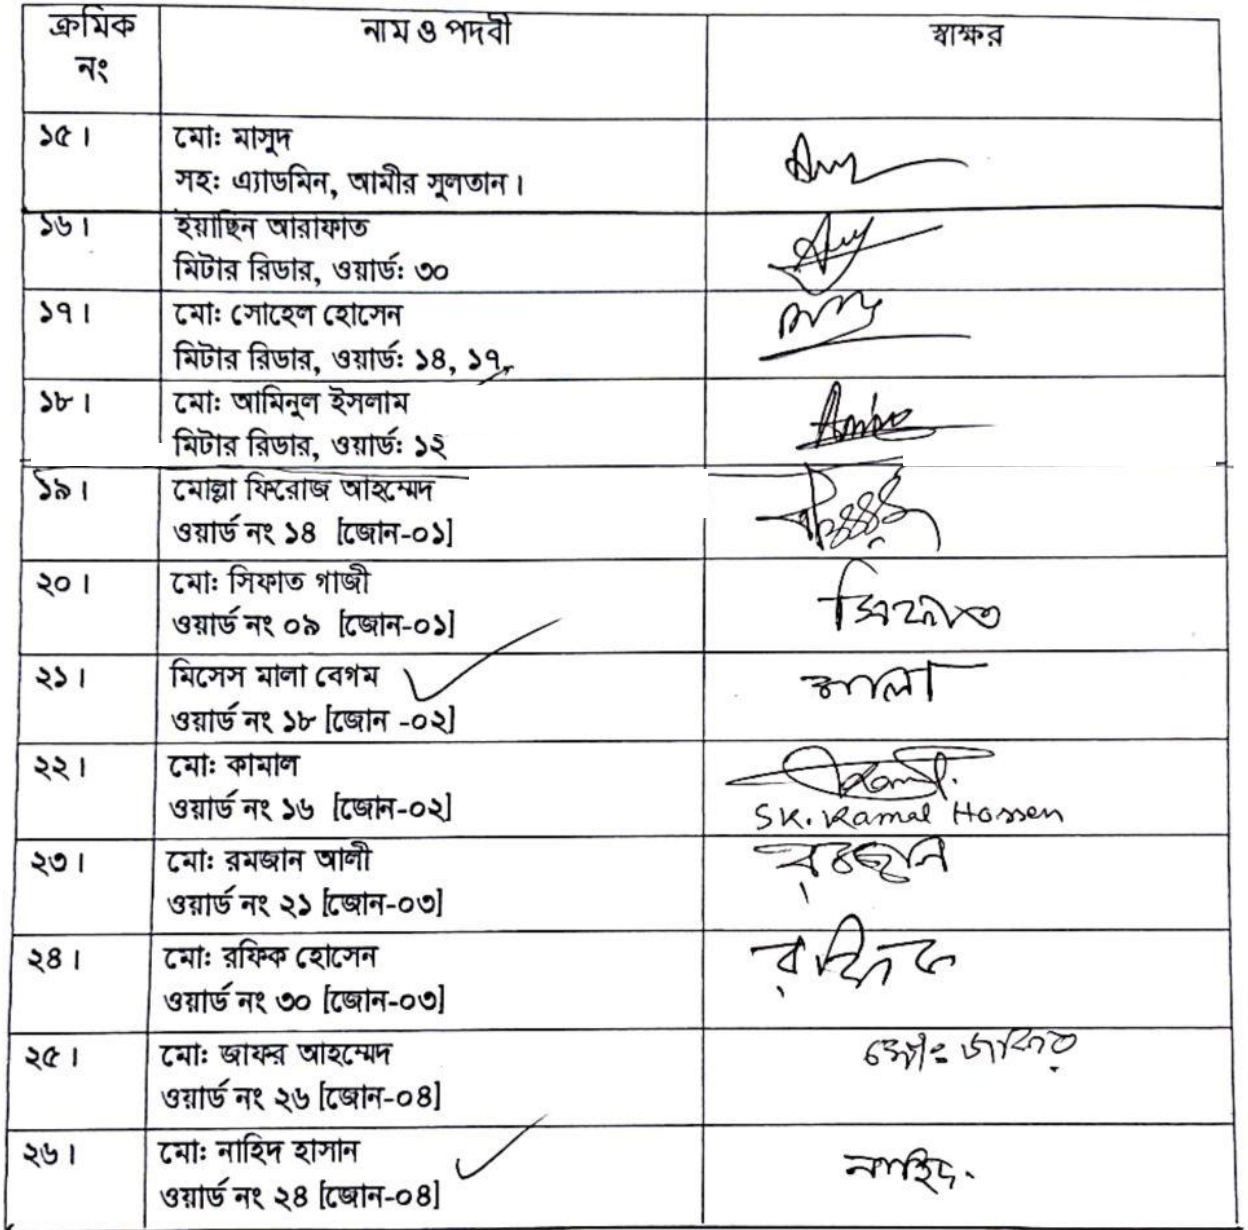 ক্রমিক নং
নাম ও পদবী
স্বাক্ষর
১৫।
মো: মাসুদ
সহ: এ্যাডমিন, আমীর সুলতান।
১৬।
ইয়াছিন আরাফাত
মিটার রিডার, ওয়ার্ড: ৩০
১৭।
মো: সোহেল হোসেন
মিটার রিডার, ওয়ার্ড: ১৪, ১৭,
১৮।
মো: আমিনুল ইসলাম
মিটার রিডার, ওয়ার্ড: ১২
১৯।
মোল্লা ফিরোজ আহম্মেদ
ওয়ার্ড নং ১৪ [জোন-০১]
২০।
মো: সিফাত গাজী
ওয়ার্ড নং ০৯ [জোন-০১]
সিফাত
২১।
মিসেস মালা বেগম
ওয়ার্ড নং ১৮ [জোন -০২]
মালা
২২।
মো: কামাল
ওয়ার্ড নং ১৬ [জোন-০২]
SK. Kamal Hossen
২৩।
মো: রমজান আলী
ওয়ার্ড নং ২১ [জোন-০৩]
রমজান
২৪।
মো: রফিক হোসেন
ওয়ার্ড নং ৩০ [জোন-০৩]
রফিক
২৫।
মো: জাফর আহম্মেদ
ওয়ার্ড নং ২৬ [জোন-০৪]
মোঃ জাফর
২৬।
মো: নাহিদ হাসান
ওয়ার্ড নং ২৪ [জোন-০৪]
নাহিদ.